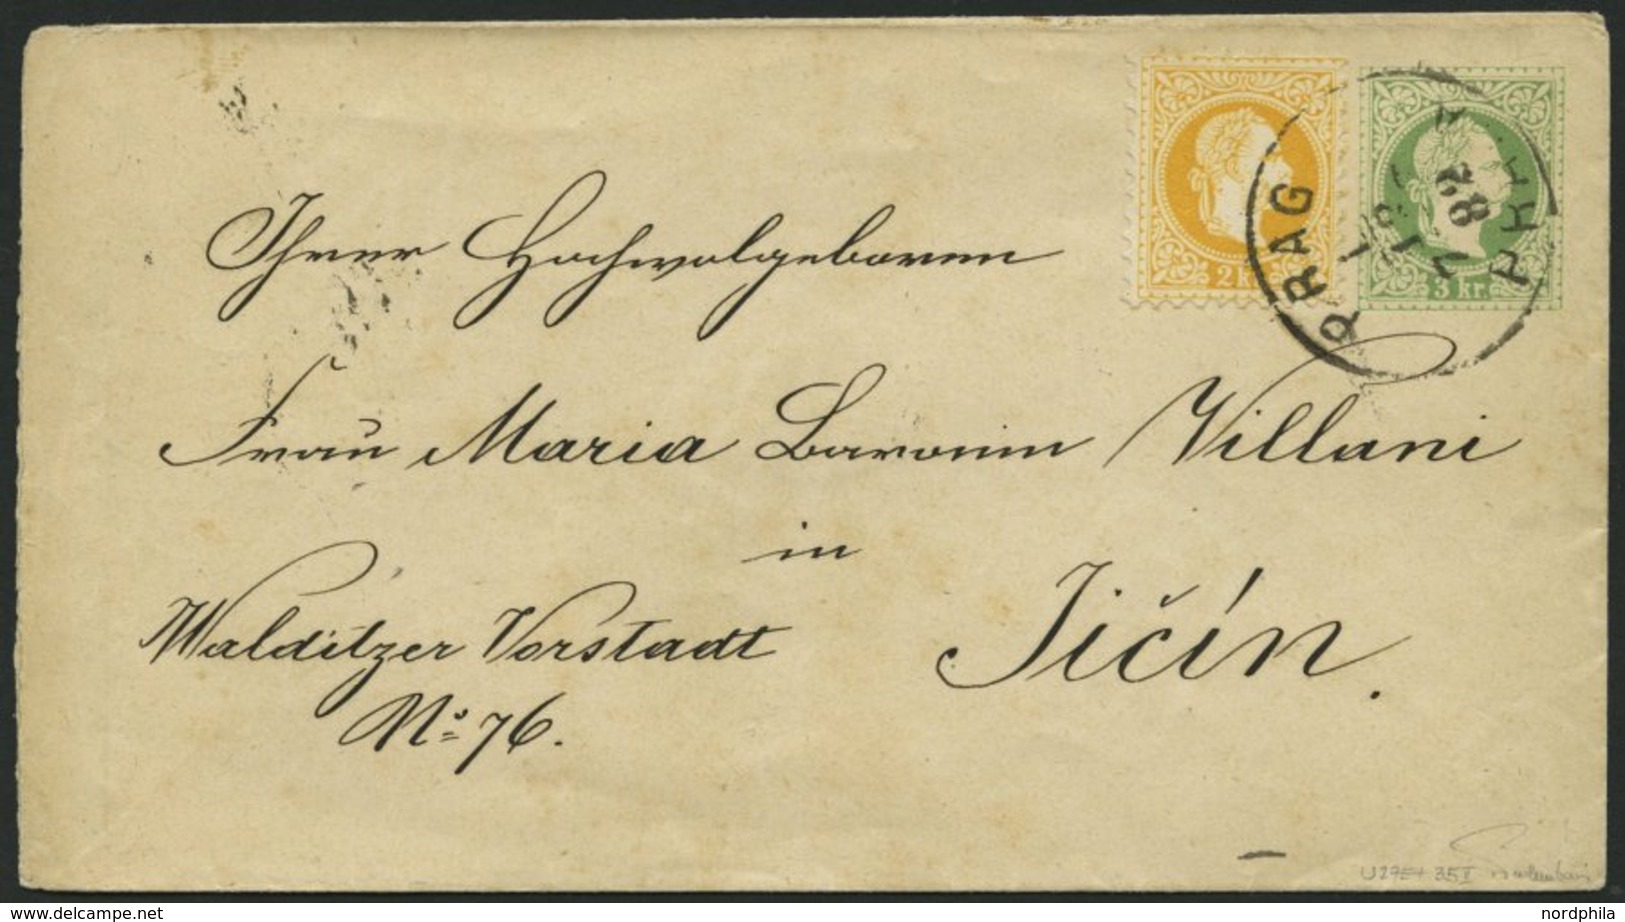 2 kr.
3 kr.
PRAG
PRAHA
82
Ihrer Hochwolgeboren
Frau Maria Baronin Villani
in
Walditzer Vorstadt
Jičín.
No 76.
U27E+35I
www.delcampe.net
nordphila